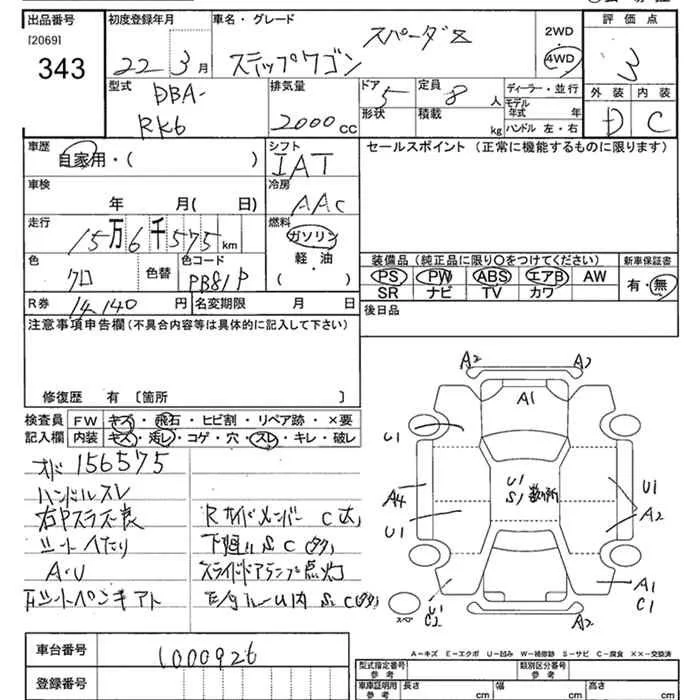 出品番号 初度登録年月 車名・グレード 2WD 評価点
[2069] スパーダZ 4WD
343 22 3月 ステップワゴン 3
型式 排気量 ドア 定員 ディーラー・並行 外装 内装
DBA- 5 8人 モデル年式 年 D C
RK6 2000cc 形状 積載 kg ハンドル 左・右
車歴 シフト セールスポイント (正常に機能するものに限ります)
自家用・( ) IAT
車検 冷房
年 月( 日) AAC
走行 燃料
15万6千575km ガソリン
色 色替 色コード 軽・油 装備品 (純正品に限り○をつけてください) 新車保証書
クロ PB81P ( ) PS PW ABS エアB AW 有・無
R券 14,140円 名変期限 月 日 SR ナビ TV カワ
注意事項申告欄 (不具合内容等は具体的に記入して下さい) 後日品
修復歴 有 [箇所 ]
検査員 FW キズ・飛石・ヒビ割・リペア跡・×要
記入欄 内装 キズ・汚レ・コゲ・穴・スレ・キレ・破レ
オド 156575
ハンドルスレ
Rサイドメンバー C大
シートヘたり 下廻り S C(多)
A・U スライドドアランプ点灯
S C(多)
A2 A2
A1
U1
U1 S1 数ヶ所
A4 U1
U1 A2
A1
U1 C1
C2
スペア A2
A−キズ E−エクボ U−凹み W−補修跡 S−サビ C−腐食 ××−交換済
車台番号 1000926
登録番号
型式指定番号 参考 類別区分番号 参考
車庫証明用 参考 長さ cm 幅 cm 高さ cm